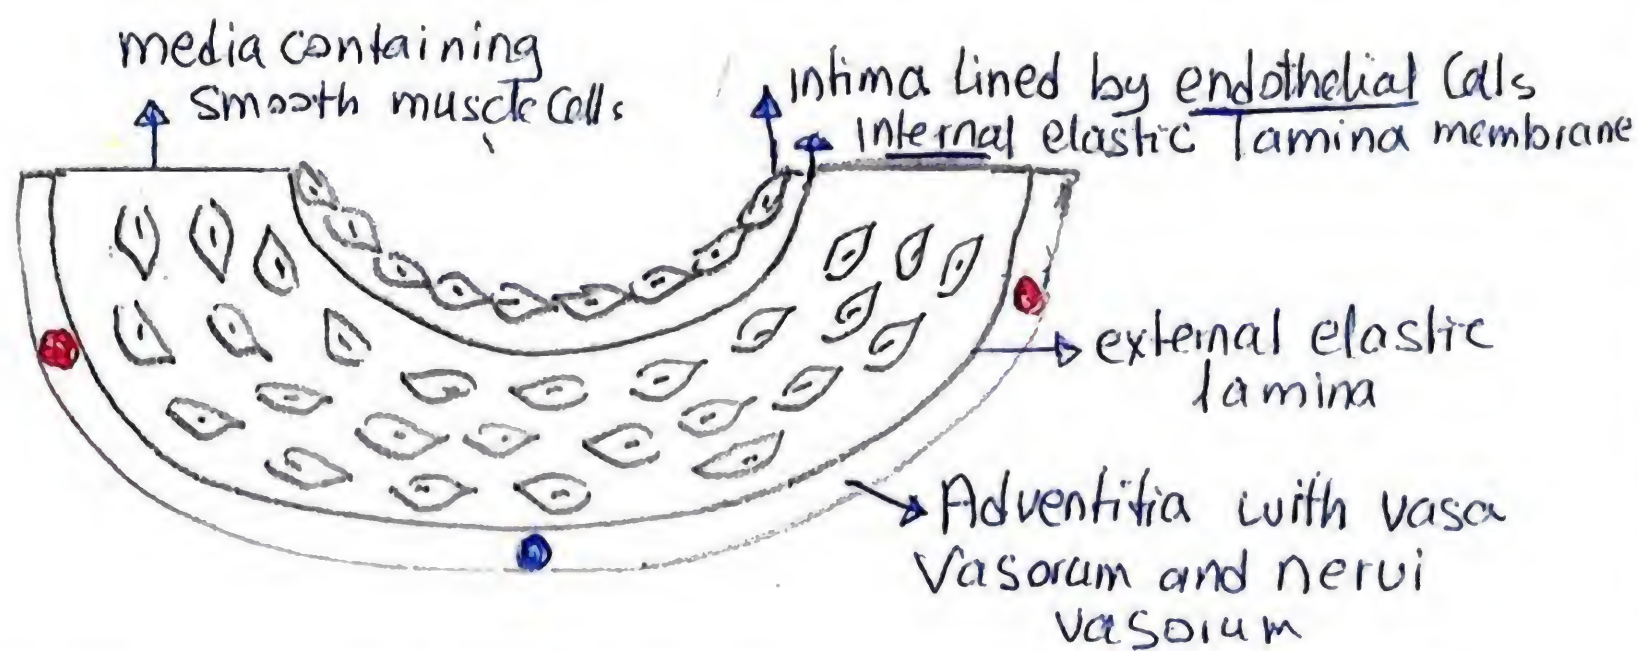 media containing
smooth muscle Cells
Intima Lined by endothelial Cells
Internal elastic lamina membrane
external elastic
lamina
Adventitia with vasa
Vasorum and nervi
vasorum